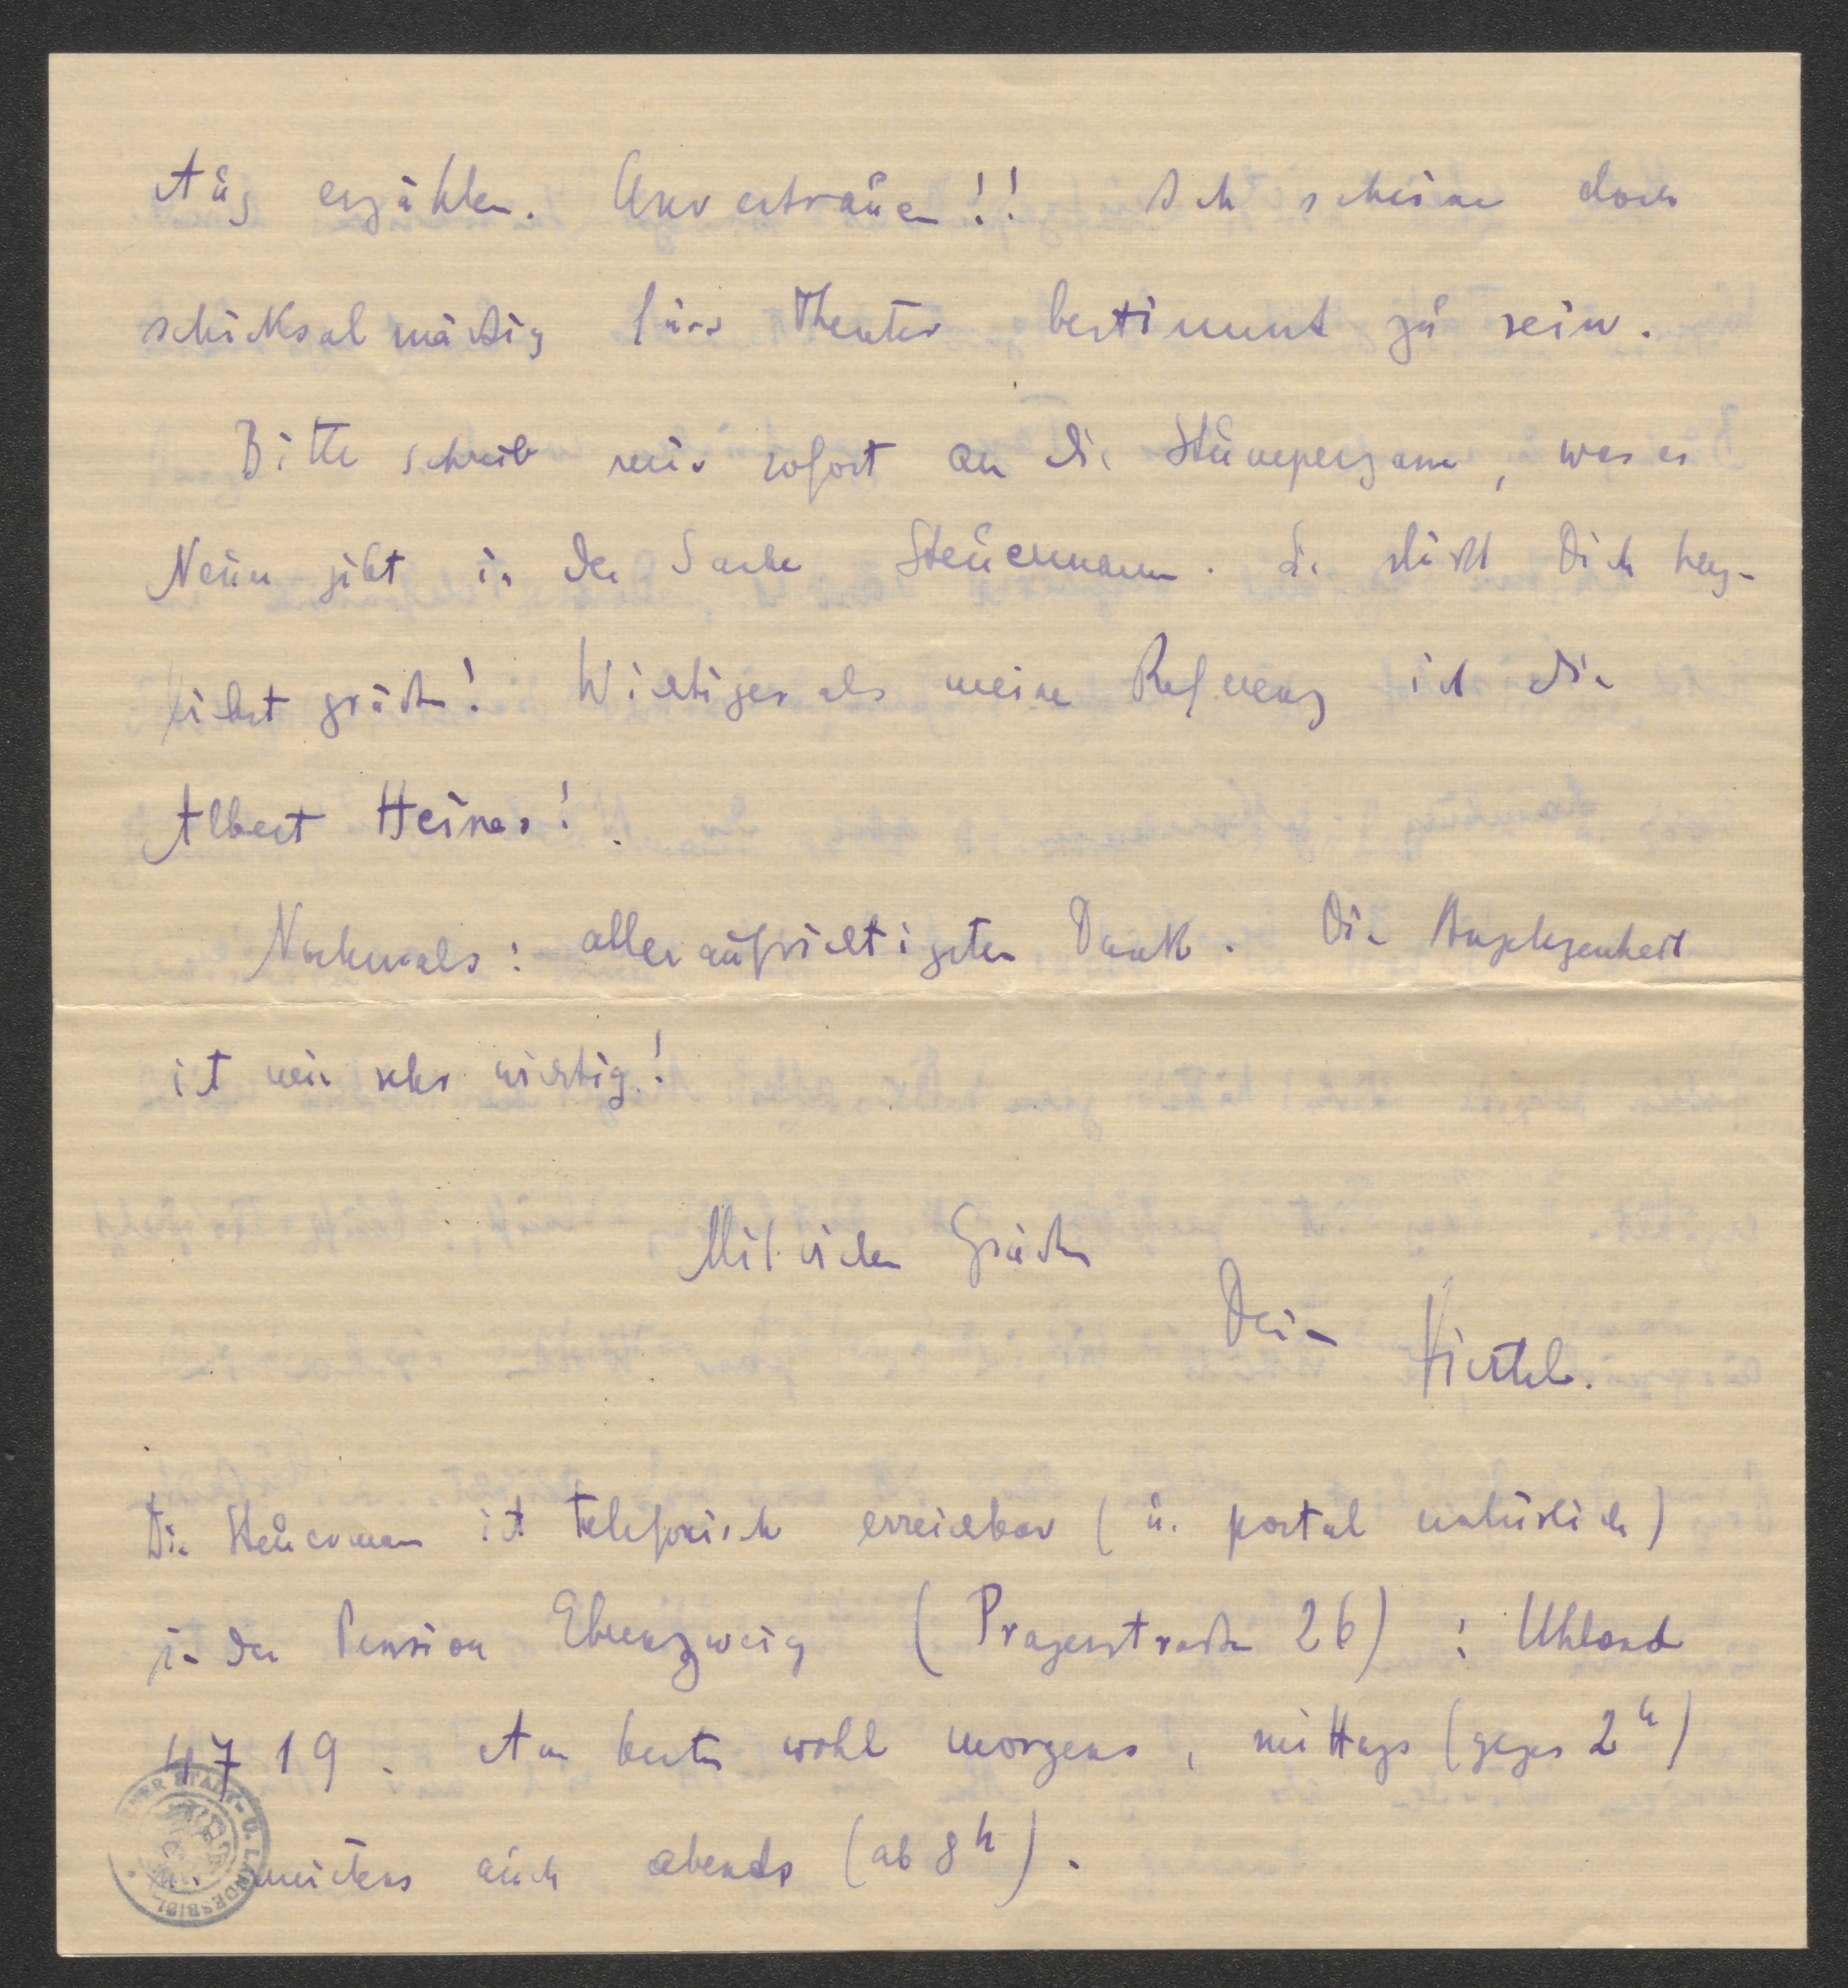 Aug erzählen. Anvertrauen!! Ich scheine doch
schicksalmäßig fürs Theater bestimmt zu sein.
Bitte schreib mir sofort an die, was es
Neues gibt in der Sache Steuermann. Sie läßt Dich herz-
lichst grüßen! Wichtiger als meine Referenz ist die
Albert Heines!
Nochmals: alleraufrichtigsten Dank. Die Angelegenheit
ist mir sehr wichtig!
Mit vielen Grüßen
Dein Viertel.
Die Steuermann ist telefonisch erreichbar (u. postal natürlich)
in der Pension Ebenzweig (Pragerstraße 26): Uhland
4719. Am besten wohl morgens, mittags (gegen 2h)
meistens auch abends (ab 8h).
STADT- U. LANDESBIBL.